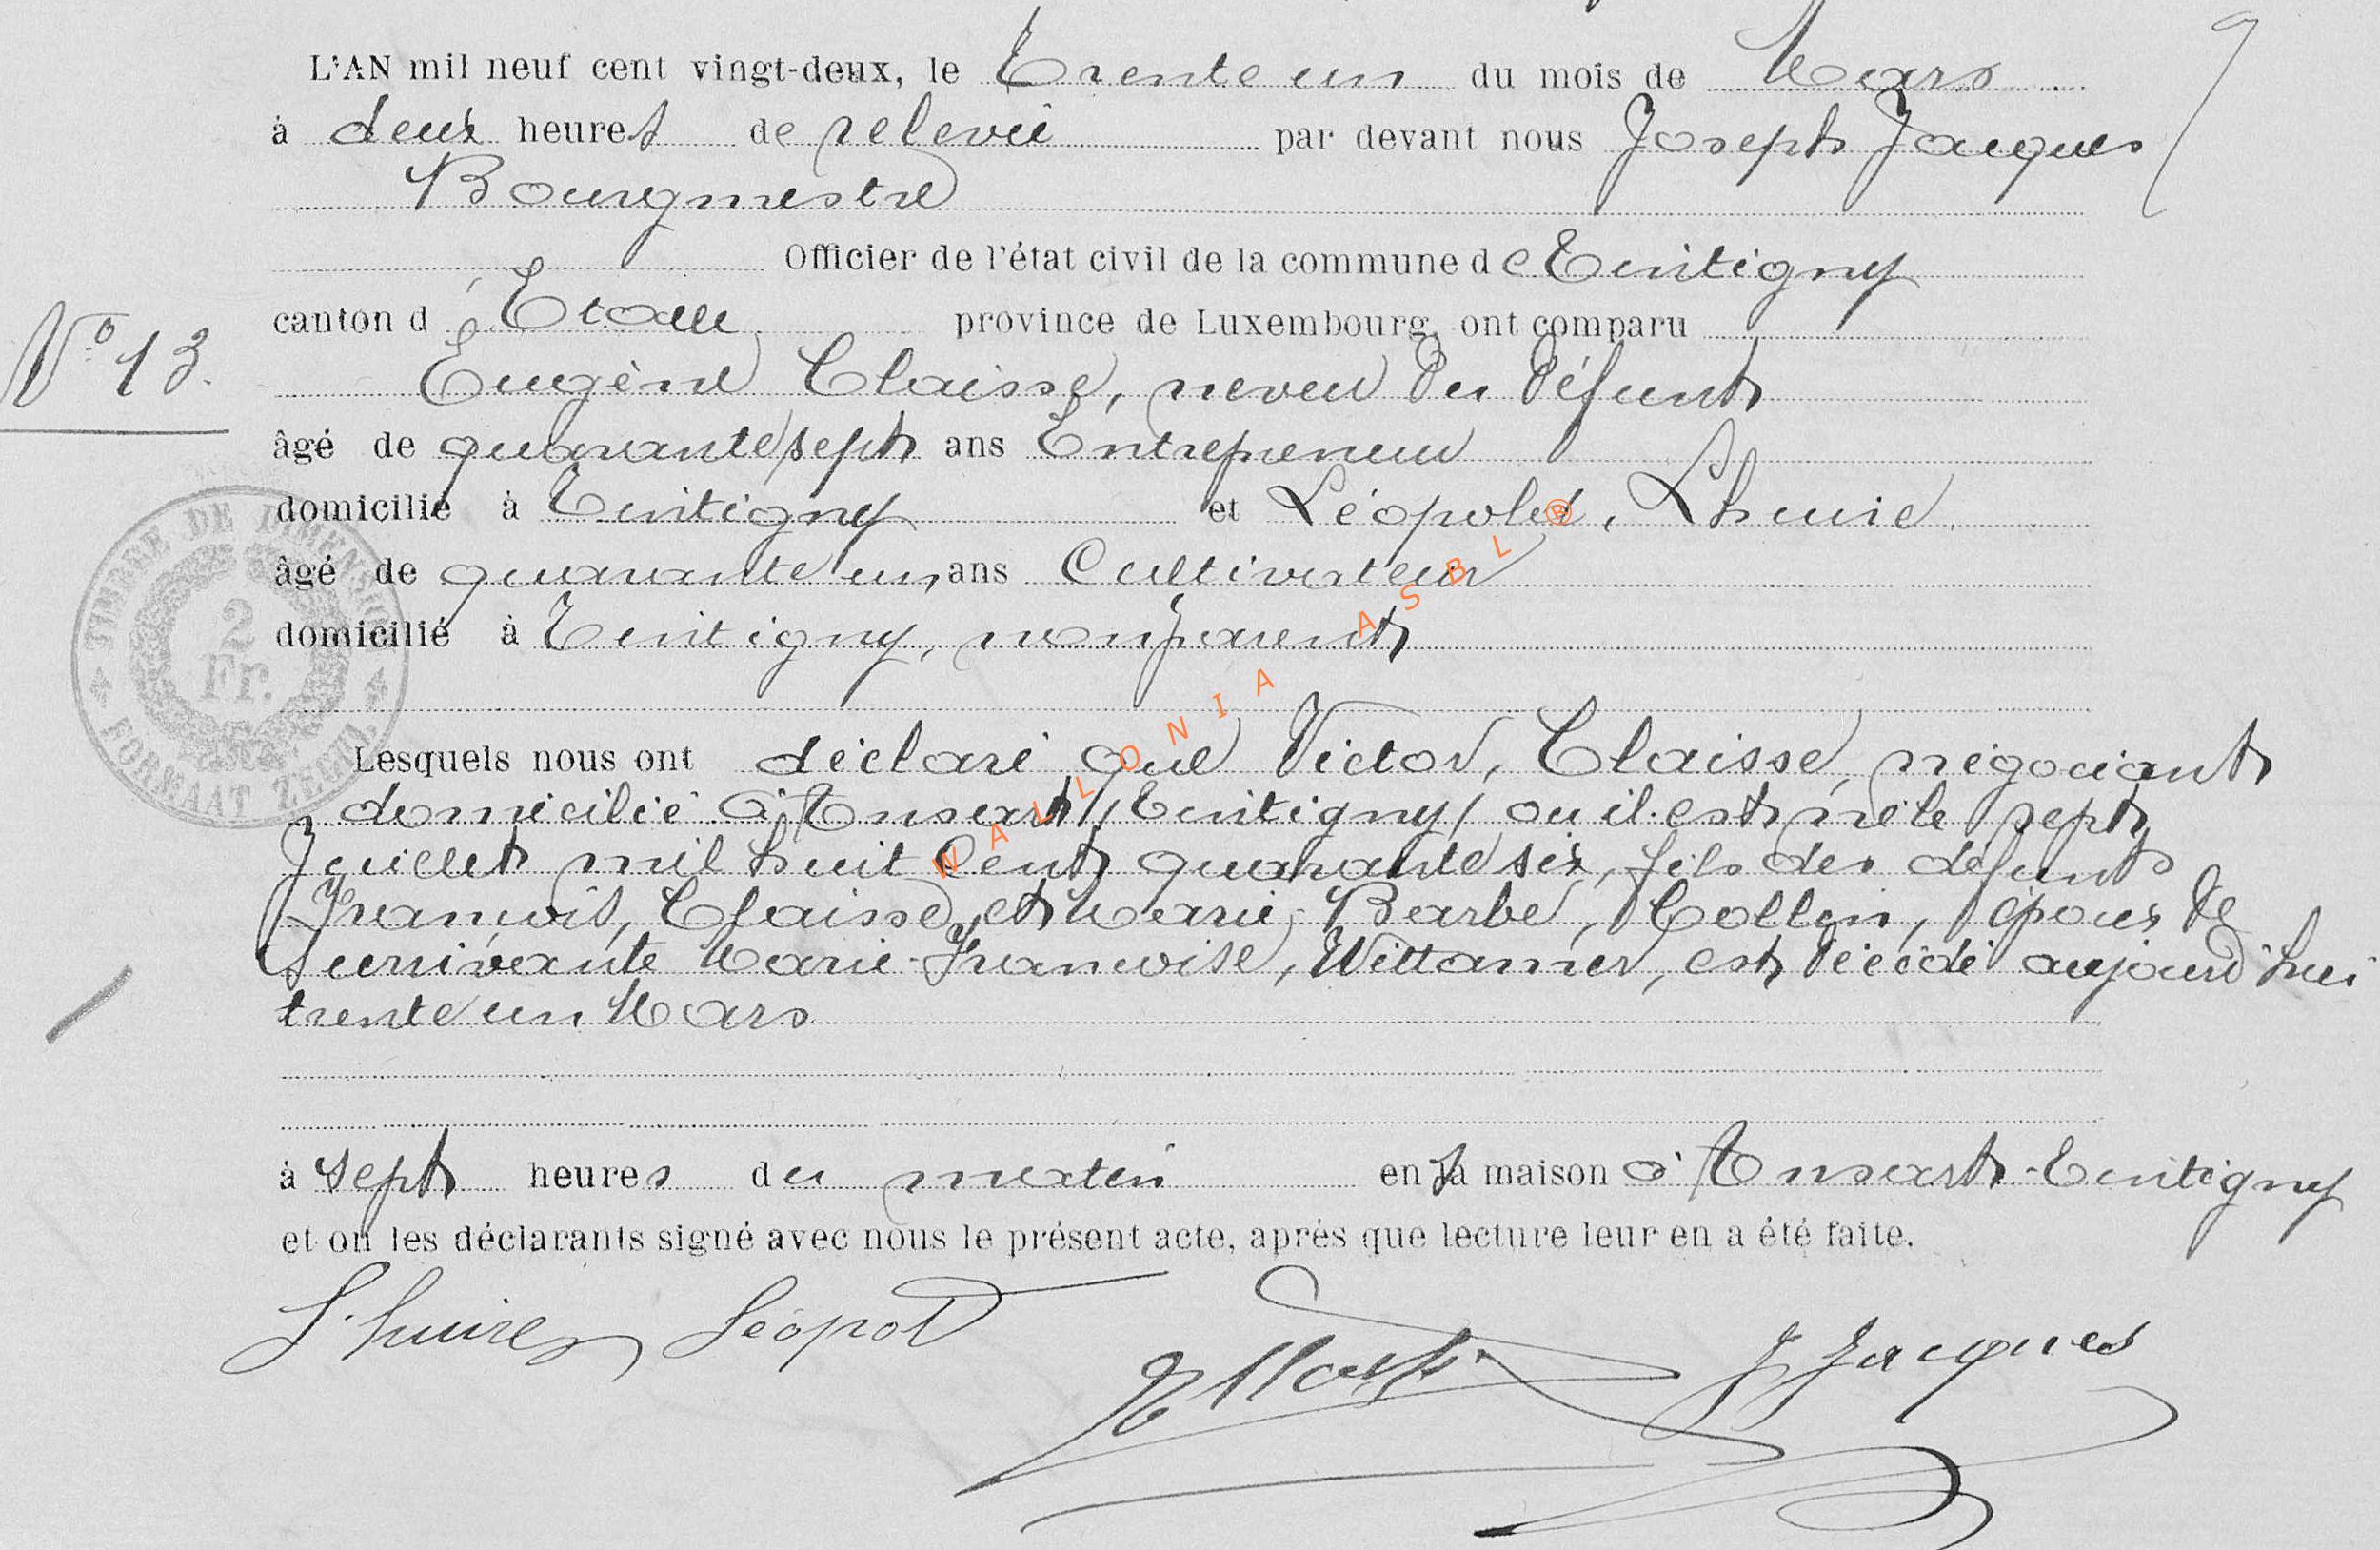 L'AN mil neuf cent vingt-deux, le Trente un du mois de Mars
à deux heures de relevée par devant nous Joseph Jacques
Bourgmestre
Officier de l'état civil de la commune de Tintigny
N° 13.
canton d'Etalle province de Luxembourg, ont comparu
Eugène Claisse, neveu du défunt
âgé de quarante sept ans Entrepreneur
domicilié à Tintigny et Léopold, Lhuire
âgé de quarante un, ans Cultivateur
domicilié à Tintigny, non parent
TIMBRE DE DIMENSION
2
Fr.
FORMAAT ZEGEL
WALLONIA ASBL ®
Lesquels nous ont déclaré que Victor, Claisse, négociant
domicilié à Ansart, /Tintigny/ ou il est né le sept
Juillet mil huit cent quarante six, fils des défunts
François, Claisse, et Marie-Barbe, Collin, époux de
survivante Marie-Françoise, Wittamer, est décédé aujourd'hui
trente un Mars
à sept heures du matin en sa maison à Ansart-Tintigny
et on les déclarants signé avec nous le présent acte, après que lecture leur en a été faite.
Lhuire Léopold
J Jacques